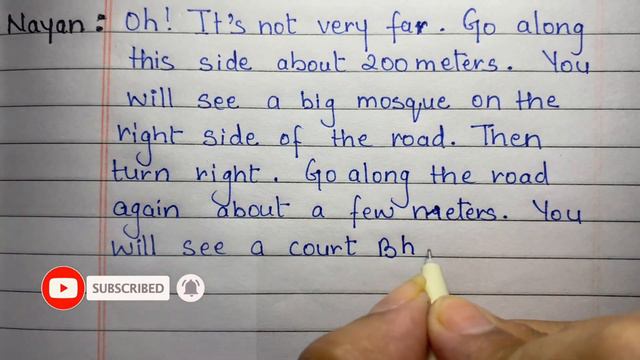 Nayan: Oh! It's not very far. Go along
this side about 200 meters. You
will see a big mosque on the
right side of the road. Then
turn right. Go along the road
again about a few meters. You
will see a court Bh
SUBSCRIBED